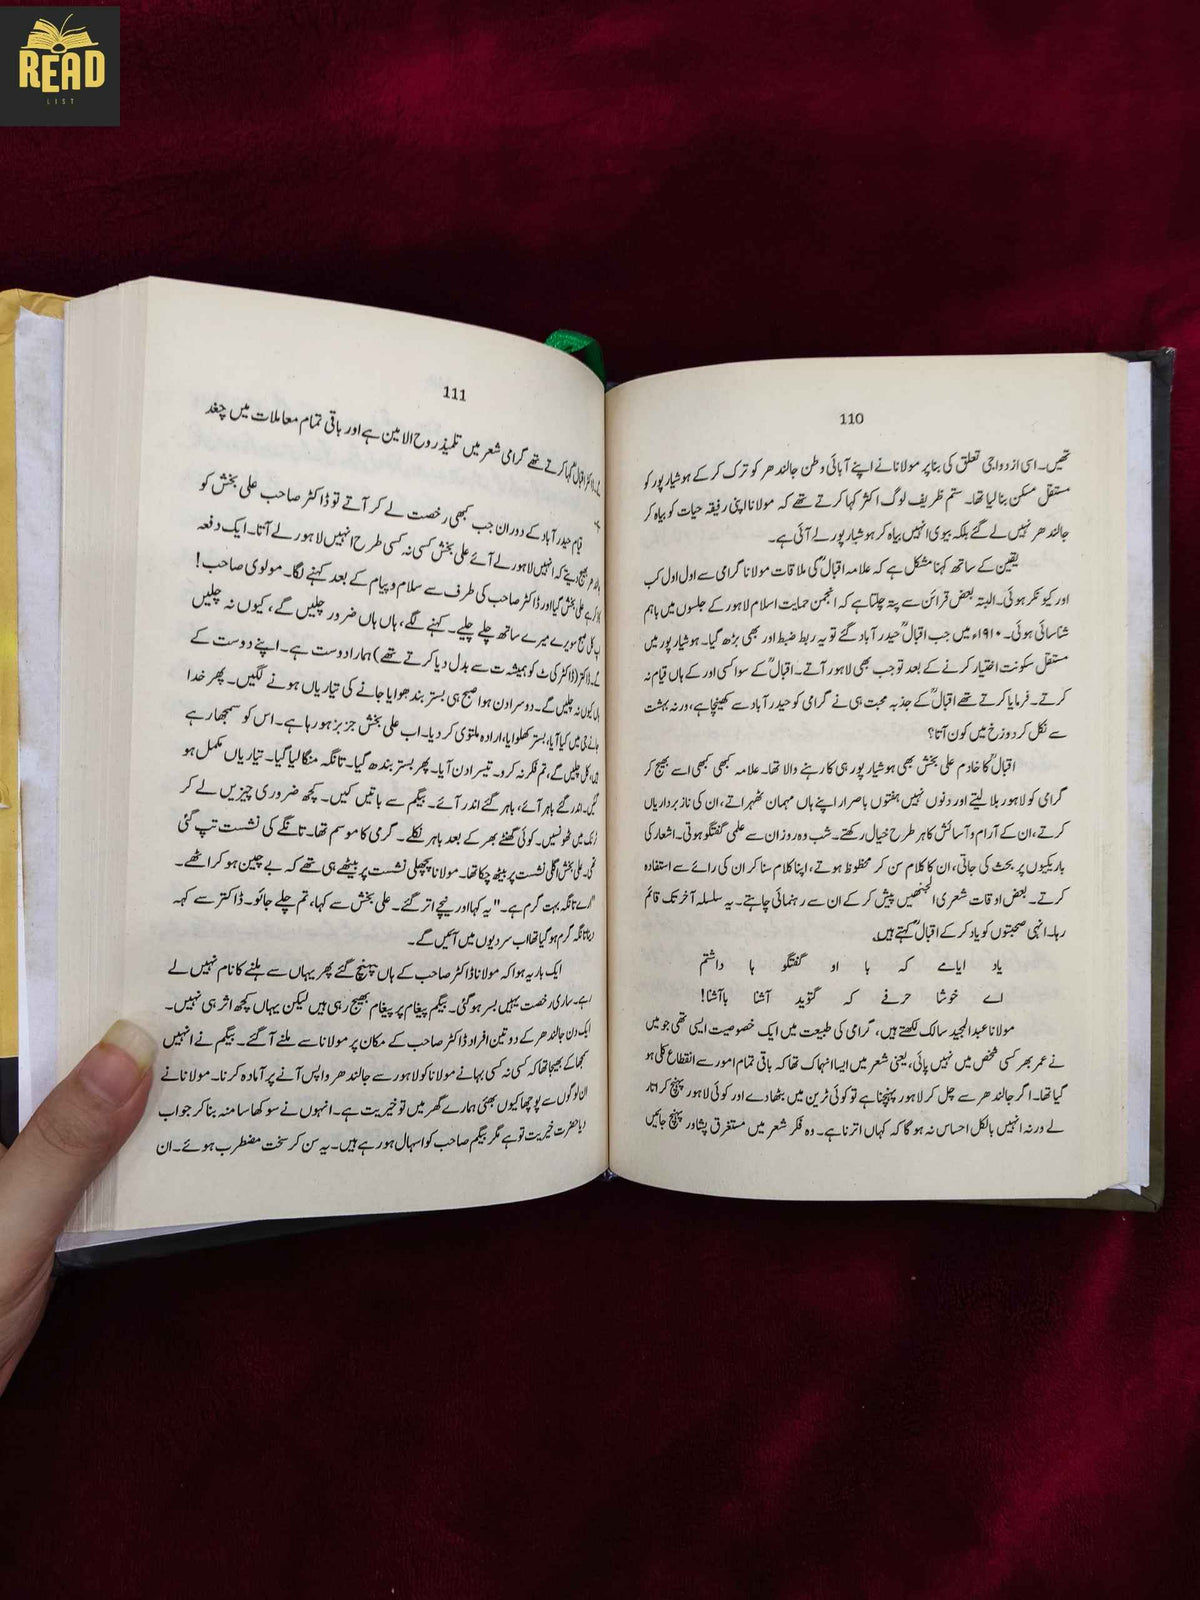 READ
LIST
110
تھیں۔ اسی ازدواجی تعلق کی بنا پر مولانا نے اپنے آبائی وطن جالندھر کو ترک کر کے ہوشیارپور کو
مستقل مسکن بنا لیا تھا۔ ستم ظریف لوگ اکثر کہا کرتے تھے کہ مولانا اپنی رفیقہ حیات کو بیاہ کر
جالندھر نہیں لے گئے بلکہ بیوی انہیں بیاہ کر ہوشیارپور لے آئی ہے۔
یقین کے ساتھ کہنا مشکل ہے کہ علامہ اقبالؒ کی ملاقات مولانا گرامی سے اول اول کب
اور کیونکر ہوئی۔ البتہ بعض قرائن سے پتہ چلتا ہے کہ انجمن حمایت اسلام لاہور کے جلسوں میں باہم
شناسائی ہوئی۔ ۱۹۱۰ء میں جب اقبالؒ حیدر آباد گئے تو یہ ربط ضبط اور بھی بڑھ گیا۔ ہوشیارپور میں
مستقل سکونت اختیار کرنے کے بعد تو جب بھی لاہور آتے۔ اقبالؒ کے سوا کسی اور کے ہاں قیام نہ
کرتے۔ فرمایا کرتے تھے اقبالؒ کے جذبہ محبت ہی نے گرامی کو حیدر آباد سے کھینچا ہے، ورنہ بہشت
سے نکل کر دوزخ میں کون آتا؟
اقبالؒ کا خادم علی بخش بھی ہوشیارپور ہی کا رہنے والا تھا۔ علامہ کبھی کبھی اسے بھیج کر
گرامی کو لاہور بلا لیتے اور دنوں نہیں ہفتوں باصرار اپنے ہاں مہمان ٹھہراتے، ان کی ناز برداریاں
کرتے، ان کے آرام و آسائش کا ہر طرح خیال رکھتے۔ شب و روز ان سے علمی گفتگو ہوتی۔ اشعار کی
باریکیوں پر بحث کی جاتی، ان کا کلام سن کر محظوظ ہوتے، اپنا کلام سنا کر ان کی رائے سے استفادہ
کرتے۔ بعض اوقات شعری الجھنیں پیش کر کے ان سے رہنمائی چاہتے۔ یہ سلسلہ آخر تک قائم
رہا۔ انہی صحبتوں کو یاد کر کے اقبالؒ کہتے ہیں۔
یاد ایامے کہ با او گفتگو ہا داشتم
اے خوشا حرفے کہ گوید آشنا با آشنا!
مولانا عبدالمجید سالک لکھتے ہیں، گرامی کی طبیعت میں ایک خصوصیت ایسی تھی جو میں
نے عمر بھر کسی شخص میں نہیں پائی، یعنی شعر میں ایسا انہماک تھا کہ باقی تمام امور سے انقطاع کلی ہو
گیا تھا۔ اگر جالندھر سے چل کر لاہور پہنچنا ہے تو کوئی ٹرین میں بٹھا دے اور کوئی لاہور پہنچ کر اتار
لے ورنہ انہیں بالکل احساس نہ ہو گا کہ کہاں اترنا ہے۔ وہ فکر شعر میں مستغرق پشاور پہنچ جائیں
111
ڈاکٹر اقبال کہا کرتے تھے گرامی شعر میں تلمیذ روح الامین ہے اور باقی تمام معاملات میں چغد
قیام حیدر آباد کے دوران جب کبھی رخصت لے کر آتے تو ڈاکٹر صاحب علی بخش کو
بھیج دیتے کہ انہیں لاہور لے آئے علی بخش کسی نہ کسی طرح انہیں لاہور لے آتا۔ ایک دفعہ
علی بخش گیا اور ڈاکٹر صاحب کی طرف سے سلام و پیام کے بعد کہنے لگا۔ مولوی صاحب!
کل صبح سویرے میرے ساتھ چلے چلیے۔ کہنے لگے، ہاں ہاں ضرور چلیں گے، کیوں نہ چلیں
گے۔ ڈاکٹر (ڈاکٹر کی ٹ کو ہمیشہ ت سے بدل دیا کرتے تھے) ہمارا دوست ہے۔ اپنے دوست کے
ہاں کیوں نہ چلیں گے۔ دوسرا دن ہوا صبح ہی بستر بندھوایا جانے کی تیاریاں ہونے لگیں۔ پھر خدا
جانے جی میں کیا آیا، بستر کھلوایا، ارادہ ملتوی کر دیا۔ اب علی بخش جز بز ہو رہا ہے۔ اس کو سمجھا رہے
ہیں، کل چلیں گے، تم فکر نہ کرو۔ تیسرا دن آیا۔ پھر بستر بندھ گیا۔ تانگہ منگا لیا گیا۔ تیاریاں مکمل ہو
گئیں۔ اندر گئے باہر آئے، باہر گئے اندر آئے۔ بیگم سے باتیں کیں۔ کچھ ضروری چیزیں لے کر
ٹرنک میں ٹھونسیں۔ کوئی گھنٹے بھر کے بعد باہر نکلے۔ گرمی کا موسم تھا۔ تانگے کی نشست تپ گئی
تھی۔ علی بخش اگلی نشست پر بیٹھ چکا تھا۔ مولانا پچھلی نشست پر بیٹھے ہی تھے کہ بے چین ہو کر اٹھے۔
"ارے تانگہ بہت گرم ہے۔" یہ کہا اور نیچے اتر گئے۔ علی بخش سے کہا، تم چلے جاؤ۔ ڈاکتر سے کہہ
دینا تانگہ گرم ہو گیا تھا اب سردیوں میں آئیں گے۔
ایک بار یہ ہوا کہ مولانا ڈاکٹر صاحب کے ہاں پہنچ گئے پھر یہاں سے ہلنے کا نام نہیں لے
رہے۔ ساری رخصت یہیں بسر ہو گئی۔ بیگم پیغام پر پیغام بھیج رہی ہیں لیکن یہاں کچھ اثر ہی نہیں۔
ایک دن جالندھر کے دو تین افراد ڈاکٹر صاحب کے مکان پر مولانا سے ملنے آ گئے۔ بیگم نے انہیں
سمجھا کے بھیجا تھا کہ کسی نہ کسی بہانے مولانا کو لاہور سے جالندھر واپس آنے پر آمادہ کرنا۔ مولانا نے
ان لوگوں سے پوچھا کیوں بھئی ہمارے گھر میں تو خیریت ہے۔ انہوں نے سوکھا سا منہ بنا کر جواب
دیا حضرت خیریت تو ہے مگر بیگم صاحب کو اسہال ہو رہے ہیں۔ یہ سن کر سخت مضطرب ہوئے۔ ان